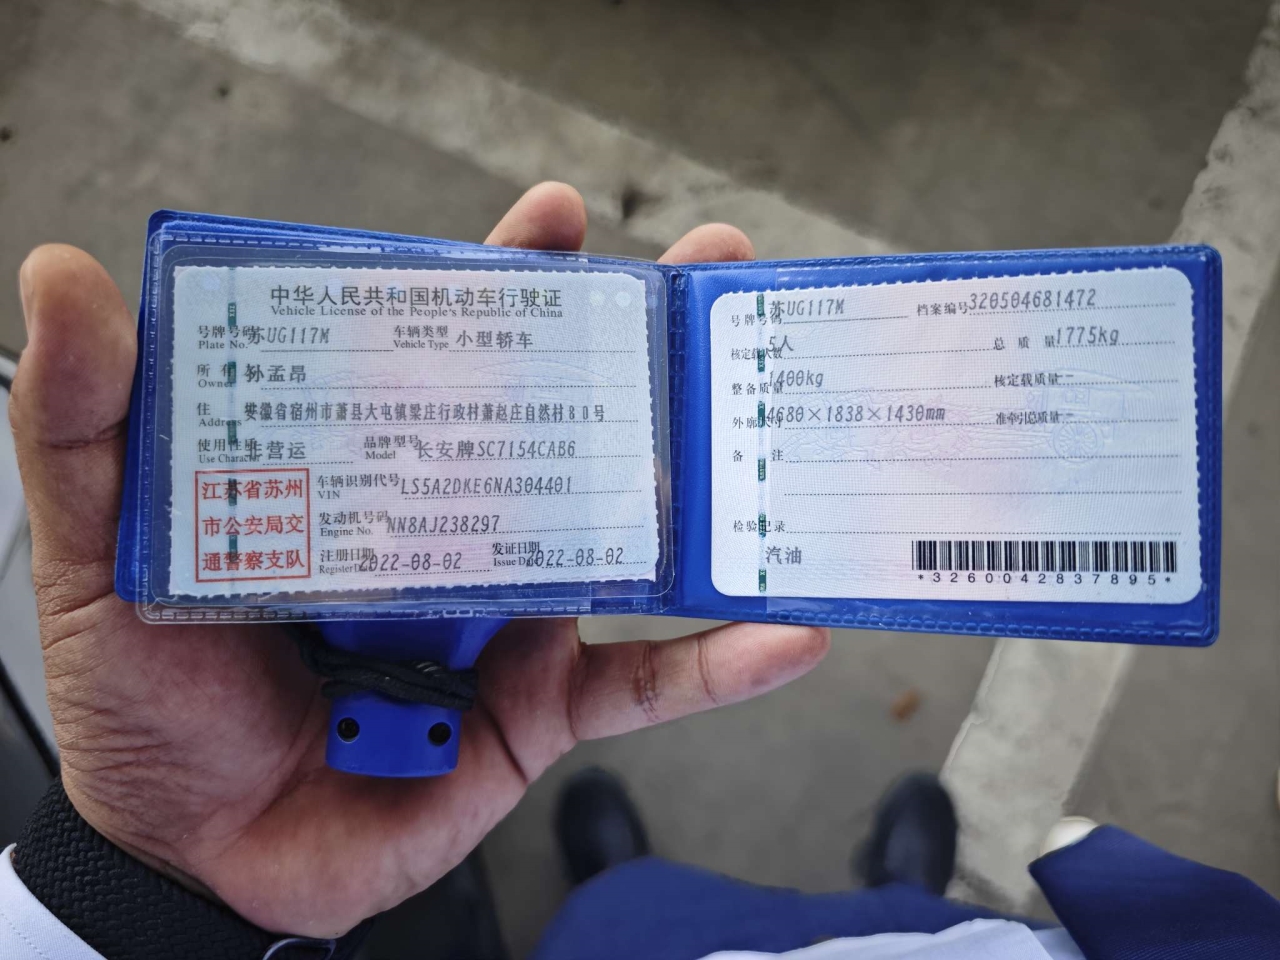 中华人民共和国机动车行驶证
Vehicle License of the People's Republic of China
号牌号码 苏UG117M 车辆类型 小型轿车
Plate No. Vehicle Type
所有 孙孟昂
Owner
住 安徽省宿州市萧县大屯镇梁庄行政村萧赵庄自然村80号
Address
使用性质 非营运 品牌型号 长安牌SC7154CAB6
Use Character Model
江苏省苏州
市公安局交
通警察支队
车辆识别代号 LS5A2DKE6NA304401
VIN
发动机号码 NN8AJ238297
Engine No.
注册日期 2022-08-02 发证日期 2022-08-02
Register Date Issue Date
号牌号码 苏UG117M 档案编号 320504681472
核定载人数 5人 总质量 1775kg
整备质量 1400kg 核定载质量 --
外廓尺寸 4680×1838×1430mm 准牵引总质量 --
备注
检验记录
汽油
*3260042837895*